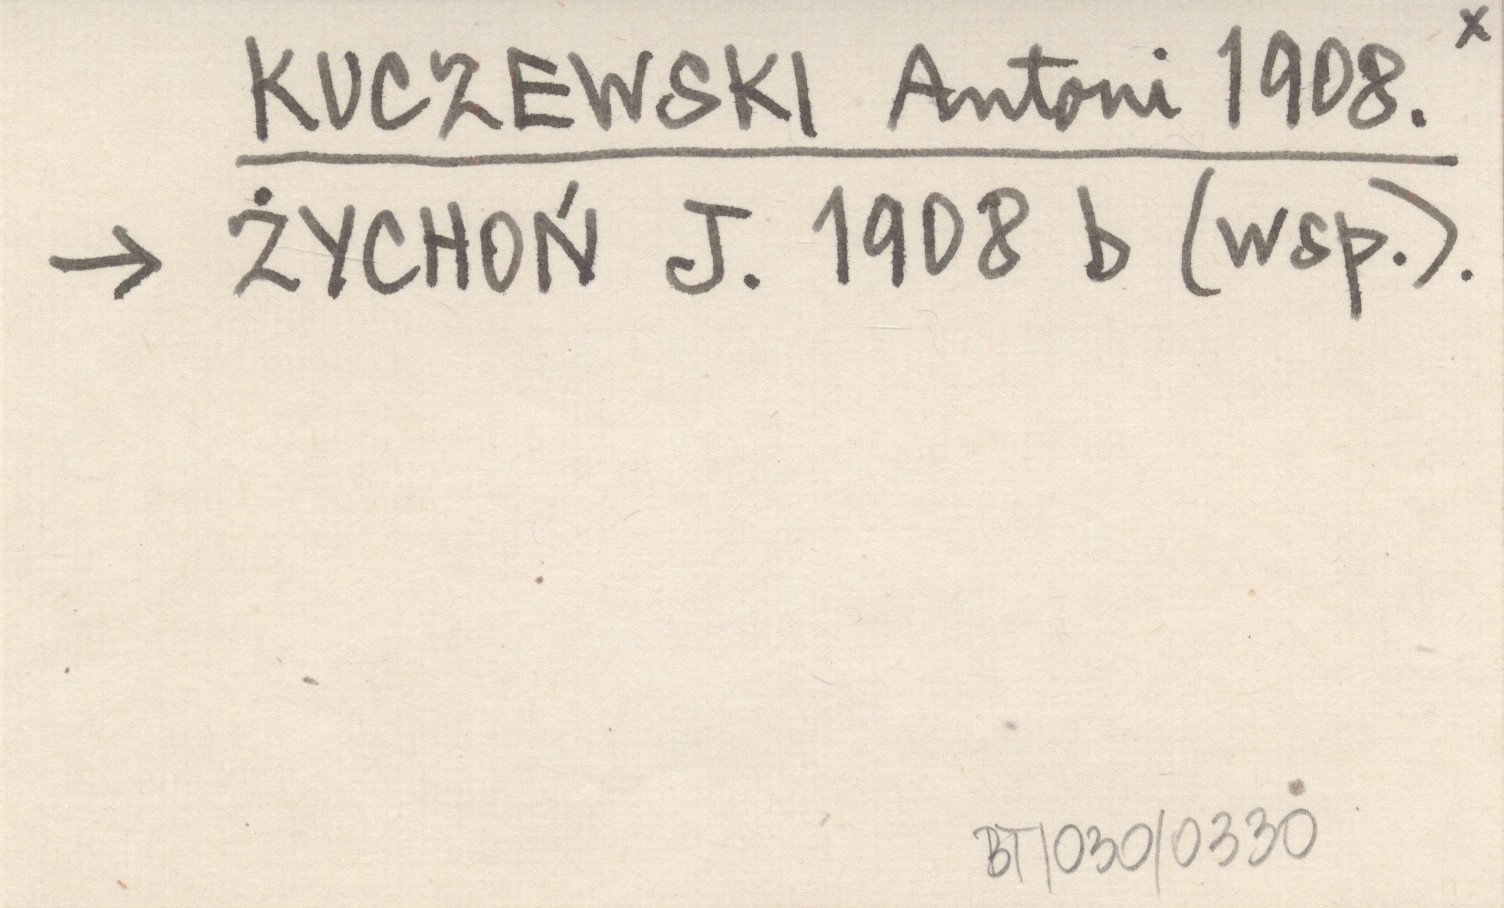 KUCZEWSKI Antoni 1908. x
→ ŻYCHOŃ J. 1908 b (wsp.).
BT/030/0330